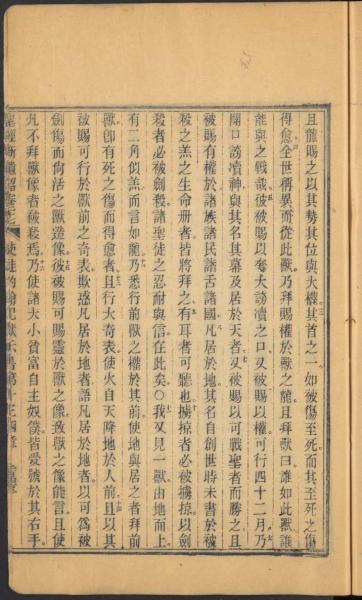 且龍賜之以其勢其位與大權其首之一如被傷至死而其至死之傷
得愈全世稱異而從此獸乃拜賜權於獸之龍且拜獸曰誰如此獸誰
能與之戰哉彼被賜以奪大謗讀之口又被賜以權可行四十二月乃
開口謗讀神與其名其幕及居於天者又被賜以可戰聖者而勝之且
被賜有權於諸族諸民諸舌諸國凡居於地其名自創世時未書於被
殺之羔之生命册者皆將拜之有耳者可聽也擄掠者必被擄掠以劍
殺者必被劍殺諸聖徒之忍耐與信在此矣○我又見一獸由地而上
有二角似羔而言如龍乃悉行前獸之權於其前使地與居之者拜前
獸即有死之傷而得愈者且行大奇表使火自天降地於人前且以其
被賜可行於獸前之奇表欺惑凡居於地者語凡居於地者以可為被
劍傷而尚活之獸造像彼被賜可賜靈於獸之像致獸之像能言且使
凡不拜獸像者被殺焉乃使諸大小貧富自主奴僕皆受號於其右手
使徒約翰 書第十三四章